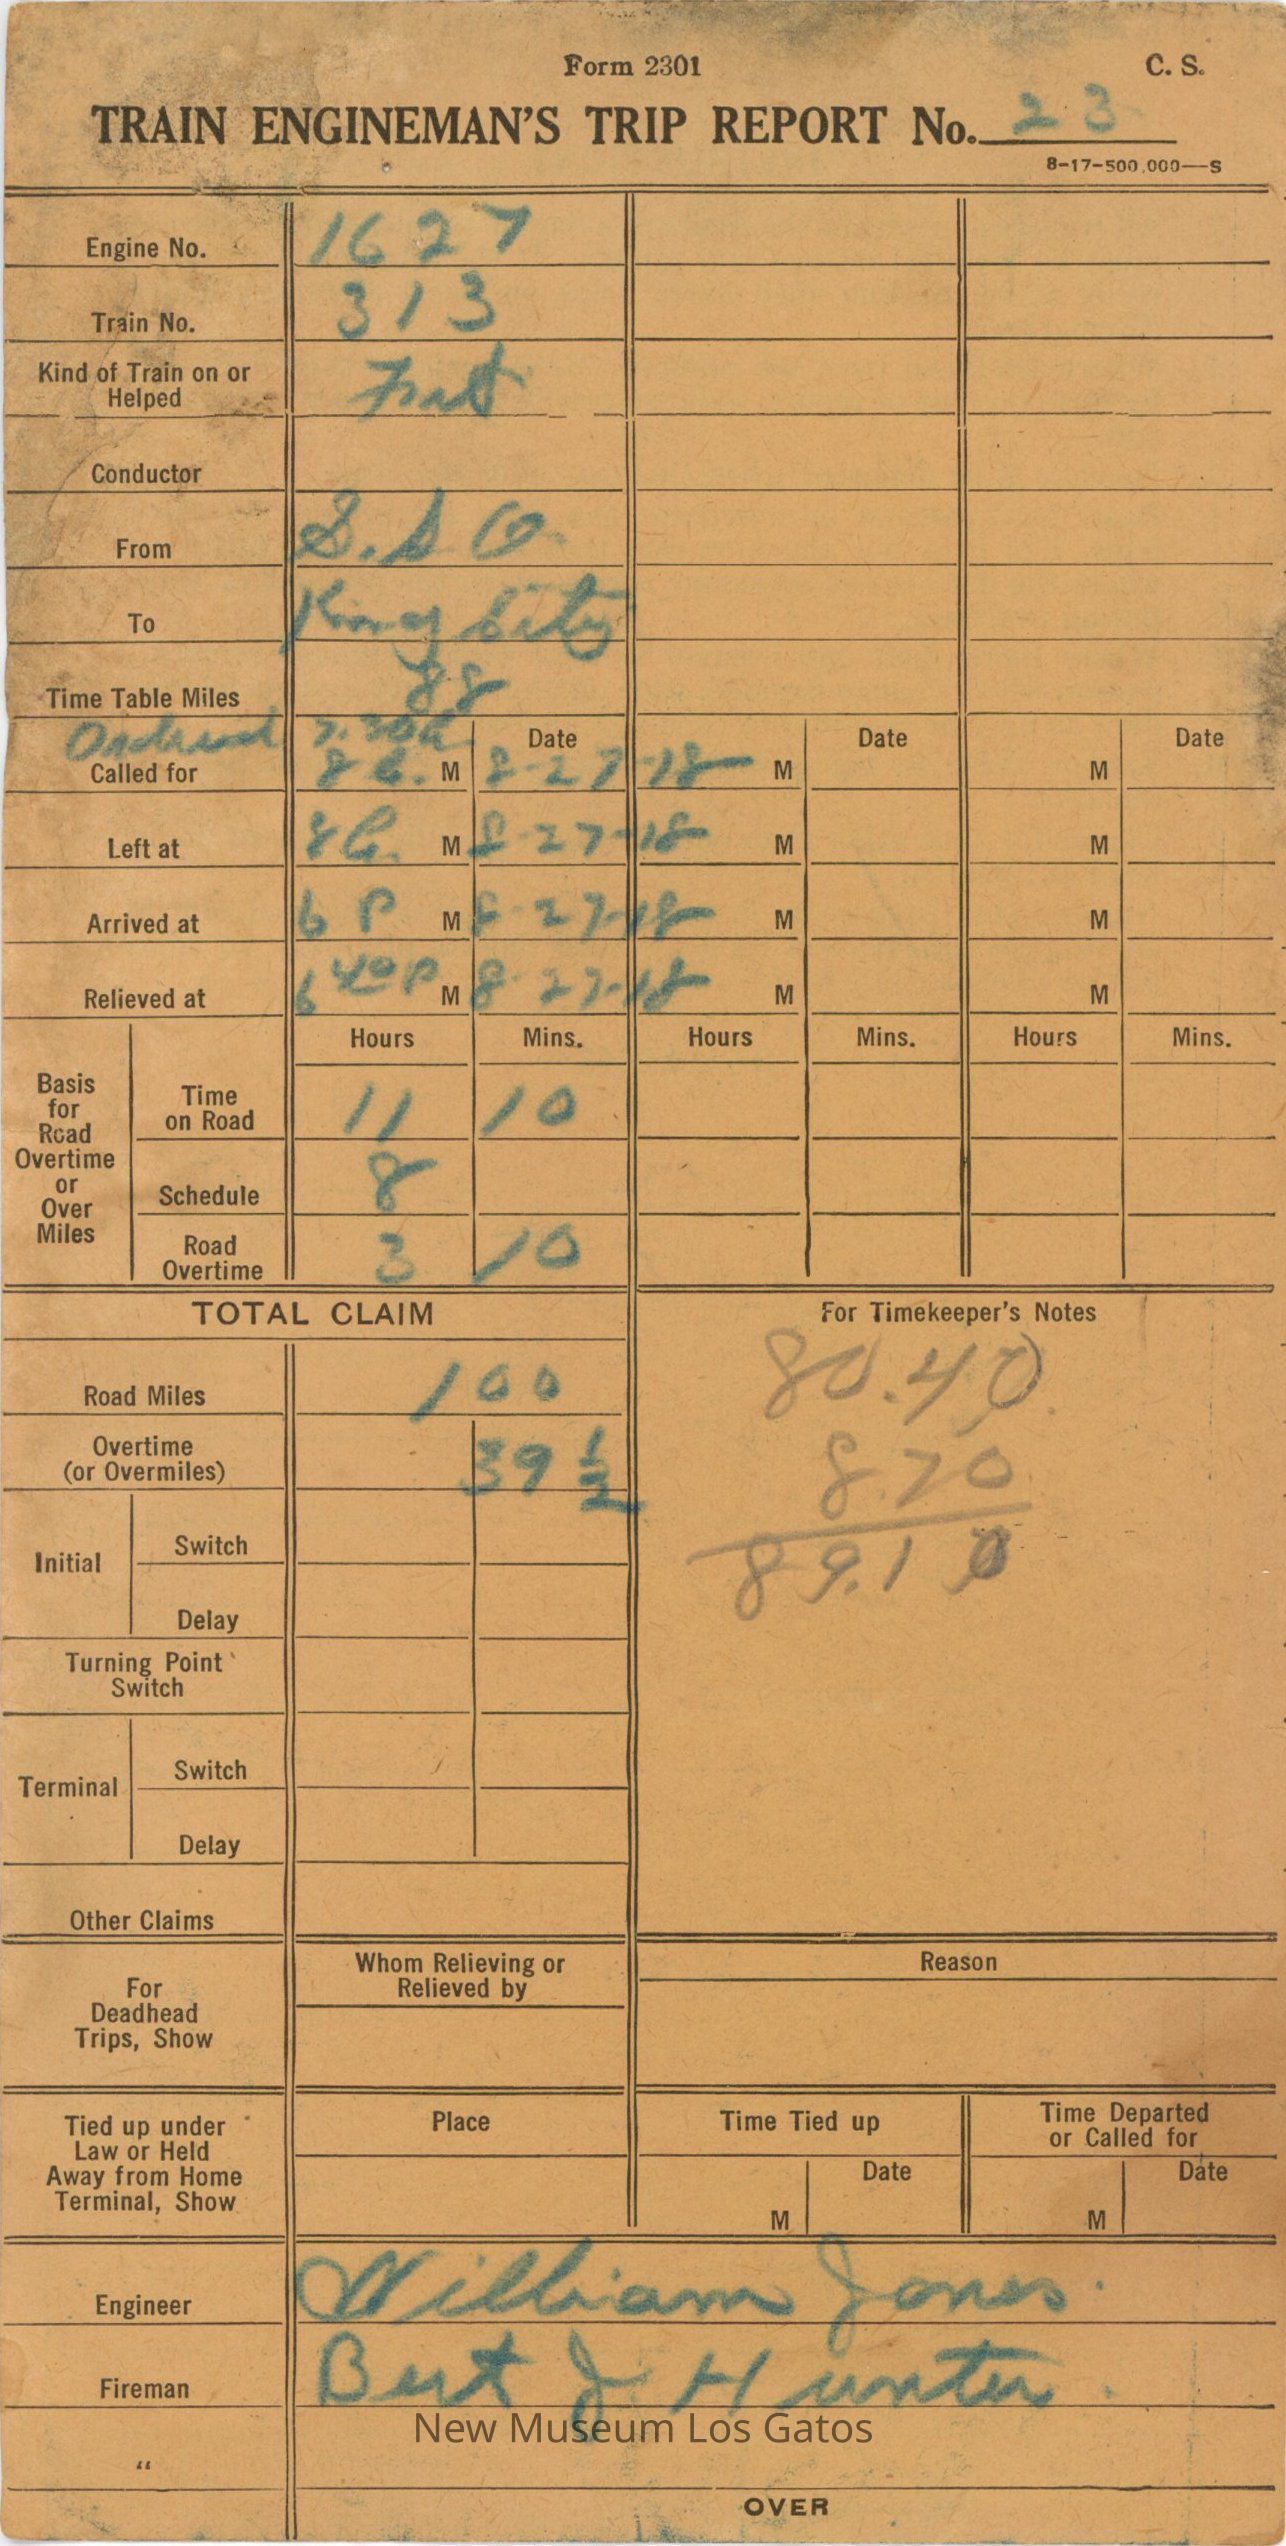 Form 2301
C. S.
TRAIN ENGINEMAN'S TRIP REPORT No. 23
8-17-500,000—S
Engine No. 1627
Train No. 313
Kind of Train on or
Helped Frt
Conductor
From S. S O.
To King City
Time Table Miles 88
Ordered 7.30a
Date Date Date
Called for 8 a. M 8-27-18 M M
Left at 8 a. M 8-27-18 M M
Arrived at 6 P M 8-27-18 M M
Relieved at 6 40 P M 8-27-18 M M
Hours Mins. Hours Mins. Hours Mins.
Basis
for
Road
Overtime
or
Over
Miles
Time
on Road 11 10
Schedule 8
Road
Overtime 3 10
TOTAL CLAIM
For Timekeeper's Notes
Road Miles 100
80.40
Overtime
(or Overmiles) 39 1/2
8.70
89.10
Initial
Switch
Delay
Turning Point
Switch
Terminal
Switch
Delay
Other Claims
For
Deadhead
Trips, Show
Whom Relieving or
Relieved by
Reason
Tied up under
Law or Held
Away from Home
Terminal, Show
Place
Time Tied up
M Date
Time Departed
or Called for
M Date
Engineer William Jones.
Fireman Bert J Hunter.
New Museum Los Gatos
"
OVER